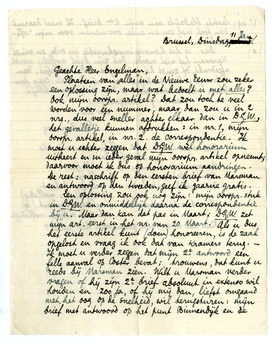 Brussel, Dinsdag
Geachte Heer Engelman,
Plaatsen van alles in de Nieuwe Eeuw zou zeker
een oplossing zijn, maar wat bedoelt u met alles?
Ook mijn oorspr. artikel? Dat zou toch te veel
worden voor één nummer, maar dan zou in 2
nrs., die veel sneller achter elkaar dan in D.G.W.
het gevalletje kunnen aftrekken: in nr. 1, mijn
oorspr. artikel, in nr. 2 de correspondentie. Ik
moet u echter zeggen dat D.G.W. wel honorarium
uitkeert en in ieder geval mijn oorspr. artikel opneemt;
daarvoor moet ik dus op honorarium aandringen.
De rest: naschrift op den eersten brief van Marsman
en antwoord op den tweeden, geef ik gaarne gratis.
Een oplossing zou ook nog zijn: mijn oorspr. stuk
in D.G.W. en onmiddellijk daarna de correspondentie
bij u. Maar dan kan dat pas in Maart; D.G.W. zet
mijn art. eerst in het nr. van 20 Maart. Als u dus
het eerste artikel kunt doen honoreeren, is de zaak
opgelost en vraag ik ook dat van Kramers terug. —
Ik moet u verder zeggen dat mijn 2e antwoord een
felle aanval op Coster bevat; trouwens, dat kunt u
reeds bij Marsman zien. Wilt u Marsman verder
vragen of hij zijn 2e brief absoluut in extenso wil
houden en zoo ja, of hij mij dan, liefst omgaand
met het oog op de snelheid, wil terugsturen: mijn
brief met antwoord op het punt Binnendijk en de